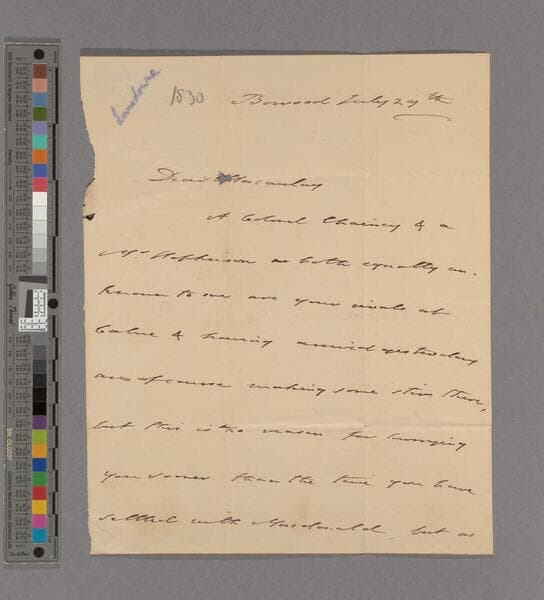 Lansdowne
1830
Bowood July 29th
Dear Macaulay
A Colonel Chainey & a
Mr Hopkinson as both equally un-
known to me are your rivals at
Calne & having arrived yesterday
are of course making some stir there,
but this is no reason for hurrying
you sooner than the time you have
settled with Macdonald, but as